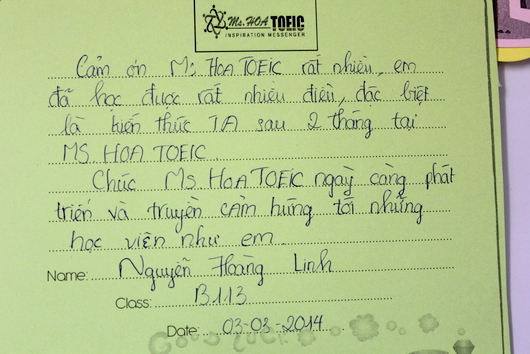 Ms. HOA TOEIC
INSPIRATION MESSENGER
Cảm ơn Ms HOA TOEIC rất nhiều, em
đã học được rất nhiều điều, đặc biệt
là kiến thức TA sau 2 tháng tại
MS. HOA TOEIC.
Chúc Ms HOA TOEIC ngày càng phát
triển và truyền cảm hứng tới những
học viên như em.
Name: Nguyễn Hoàng Linh
Class: B113
Date: 03-03-2014